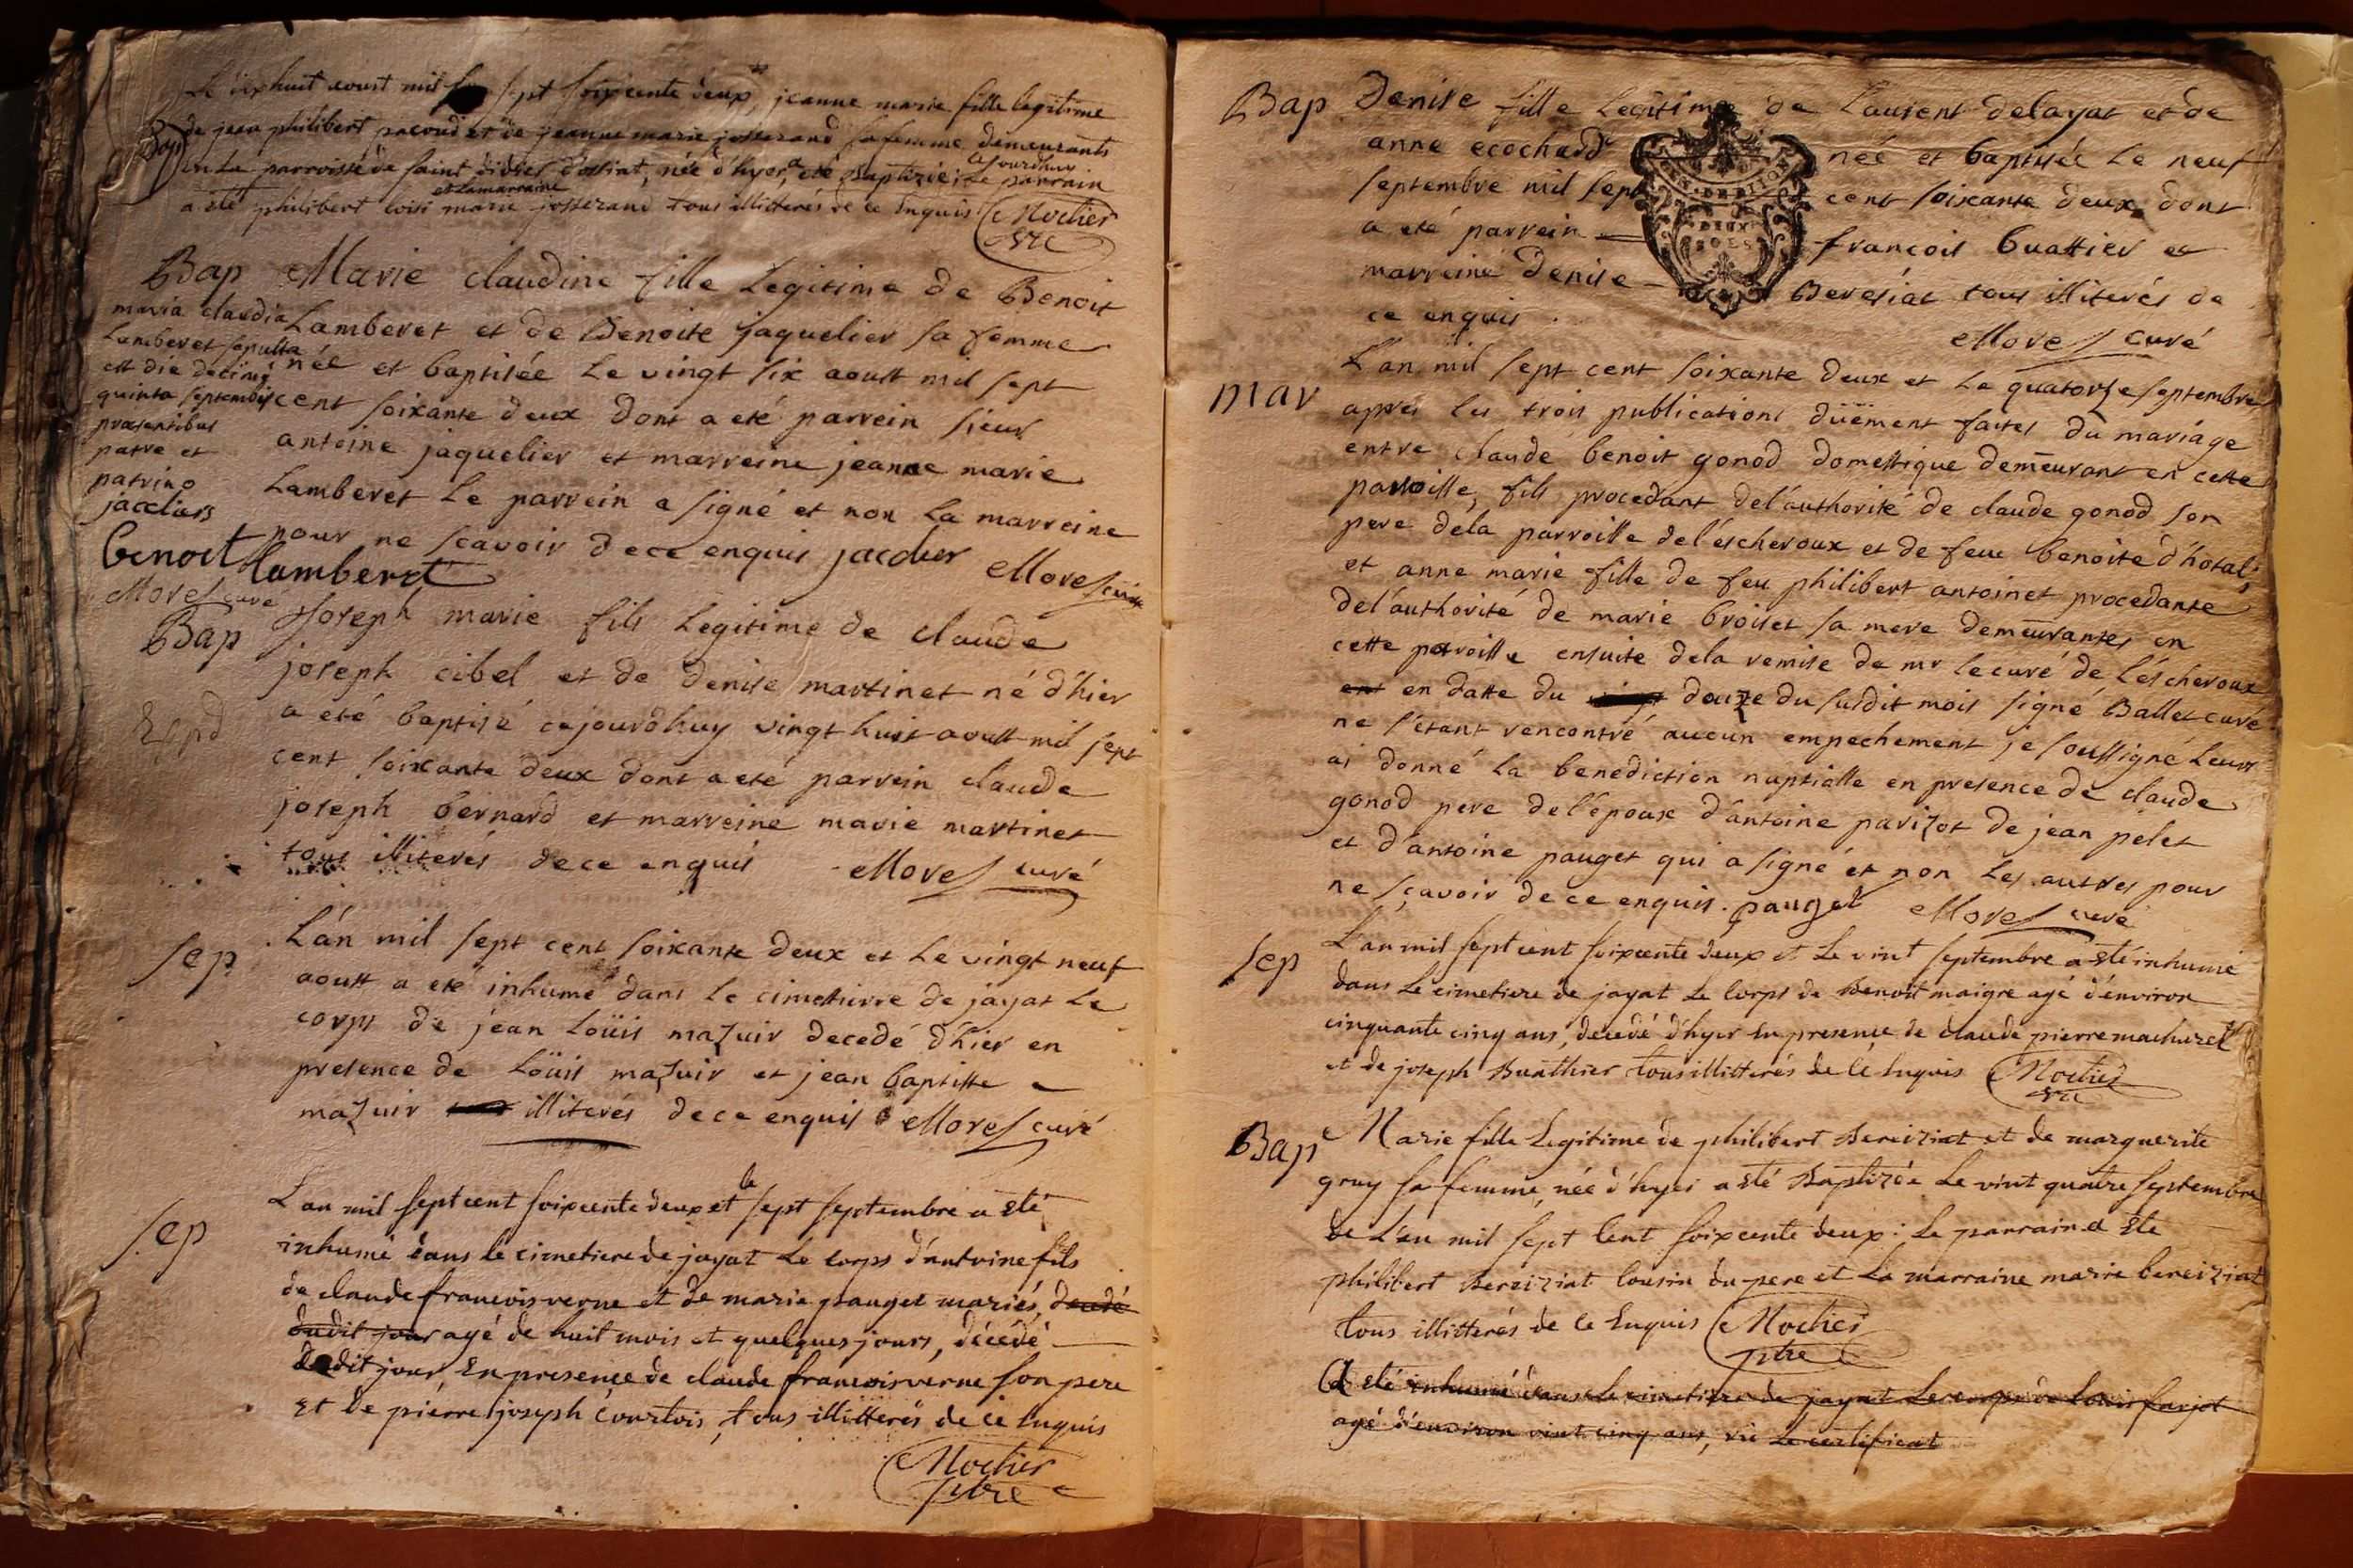 Le dixhuit aoust mil sept soixcente deux, jeanne marie fille legitime
Bap
de jean philibert pacoud et de jeanne marie josserand sa femme demeurants
en la parroisse de saint didier d'ossiat, née d'hyer, a eté Baptizée cejourdhuy le parrain
a eté philibert loisi et la marraine marie josserand tous illitterés de ce Enquis Mochier
vic
Bap Marie claudine fille Legitime de Benoit
Lamberet et de Benoite jaquelier sa femme
née et baptisée Le vingt six aoust mil sept
cent soixante deux dont a eté parrein sieur
antoine jaquelier et marreine jeanne marie
Lamberet Le parrein a signé et non La marreine
pour ne scavoir de ce enquis jaclier Morel curé
maria claudia
Lamberet sepulta
est die decimi
quinta septembris
præsentibus
patre et
patrino
jacliers
benoit lamberet
Morel curé
Bap
Joseph marie fils Legitime de claude
joseph cibel et de denise martinet né d'hier
a eté baptisé cejourdhuy vingt huit aoust mil sept
cent soixante deux dont a eté parrein claude
joseph bernard et marreine marie martinet
tous illiterés de ce enquis Morel curé
Sep
L'an mil sept cent soixante deux et Le vingt neuf
aoust a eté inhumé dans Le cimettierre de jayat Le
corps de jean Loüis mazuir decedé d'hier en
presence de Loüis mazuir et jean baptiste
mazuir illiterés de ce enquis Morel curé
Sep
L'an mil sept cent soixcente deux et le sept septembre a eté
inhumé dans le cimetiere de jayat Le corps d'antoine fils
de claude francois verne et de marie pauget mariés, decedé
dudit jour agé de huit mois et quelques jours, décédé
dudit jour En presence de claude francois verne son pere
et de pierre joseph courtois, tous illitterés de ce Enquis
Mochier
ptre
Bap Denise fille Legitime de Laurent delayat et de
anne ecochard née et baptisée Le neuf
septembre mil sept cent soixante deux dont
a eté parrein françois buattier et
marreine Denise Beresiat tous illiterés de
ce enquis
Morel curé
GEN. DE DIJON
DEUX
SOLS
mar
L'an mil sept cent soixante deux et Le quatorze septembre
apres les trois publications düement faites du mariage
entre claude benoit gonod domestique demeurant en cette
parroisse, fils procedant de l'authorité de claude gonod son
pere de la parroisse de l'escheroux et de feue benoite d'hotal;
et anne marie fille de feu philibert antoinet procedante
de l'authorité de marie broiset sa mere demeurantes en
cette parroisse ensuite de la remise de mr le curé de L'éscheroux
en datte du douze du susdit mois signé Ballet curé
ne s'etant rencontré aucun empechement je soussigné Leur
ai donné La benediction nuptialle en presence de claude
gonod pere de l'époux d'antoine parizot de jean pelet
et d'antoine pauget qui a signé et non Les autres pour
ne sçavoir de ce enquis. pauget Morel curé
Sep
L'an mil sept cent soixcente deux et Le vint septembre a eté inhumé
dans Le cimetiere de jayat Le Corps de Benoit maigre agé d'environ
cinquante cinq ans, decedé d'hyer En presence de claude pierre machurel
et de joseph Buathier tous illitterés de ce Enquis Mochier
vic
Bap
Marie fille Legitime de philibert Bereiziat et de marguerite
gruy sa femme, née d'hyer a eté Baptizée Le vint quatre septembre
de L'an mil sept Cent soixcente deux: Le parrain a eté
philibert Bereiziat Cousin du pere et La marraine marie bereiziat
tous illitterés de Ce Enquis Mochier
ptre
A eté inhumé dans Le cimetiere de jayat Le corps de Louis farjot
agé d'environ vint cinq ans, vu Le certificat